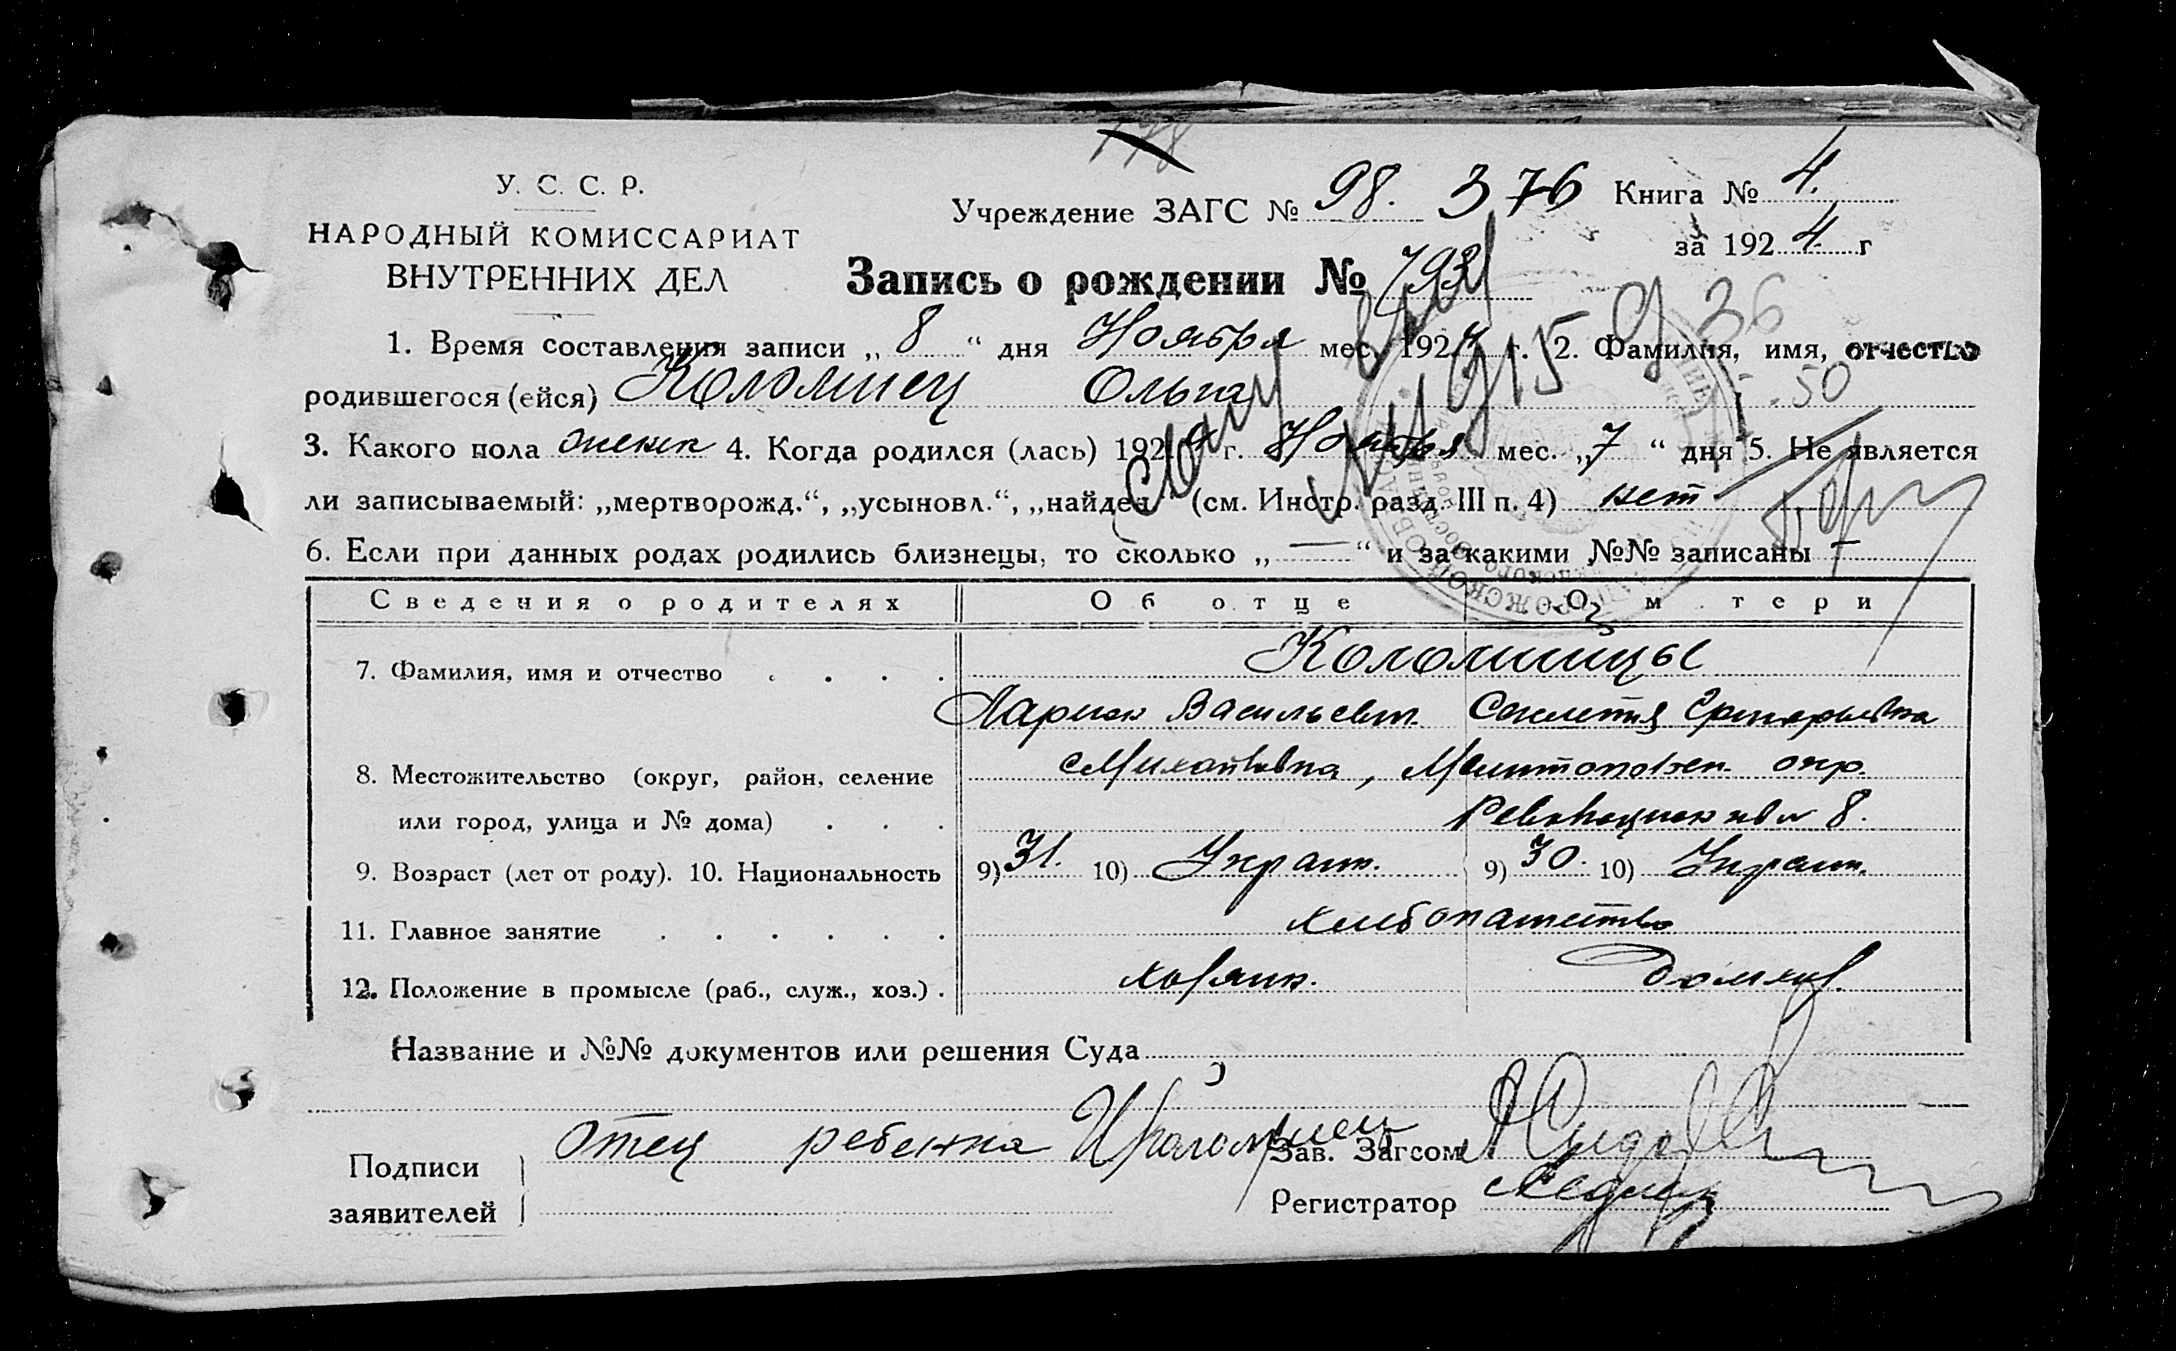 178
У. С. С. Р.
НАРОДНЫЙ КОМИССАРИАТ
ВНУТРЕННИХ ДЕЛ
Учреждение ЗАГС № 98. 376 Книга № 4.
за 1924 г
Запись о рождении № 793
1. Время составления записи „ 8 “ дня Ноября мес. 1924 г. 2. Фамилия, имя, отчество
родившегося (ейся) Коломиец Ольга
3. Какого пола женск 4. Когда родился (лась) 1924 г. Ноября мес. „ 7 “ дня 5. Не является
ли записываемый: „мертворожд.“, „усыновл.“, „найден“ (см. Инстр. разд. III п. 4) нет
6. Если при данных родах родились близнецы, то сколько „ — “ и за какими №№ записаны —
Сведения о родителях Об отце О матери
7. Фамилия, имя и отчество Коломийцы
Ларион Васильевич Григорьевна
8. Местожительство (округ, район, селение Михайловка, Мелитопольск. окр.
или город, улица и № дома) 8.
9. Возраст (лет от роду). 10. Национальность 9) 31. 10) Украин. 9) 30. 10) Украин.
11. Главное занятие хлебопашество
12. Положение в промысле (раб., служ., хоз.) хозяин. домхоз.
Название и №№ документов или решения Суда
Подписи заявителей Отец ребенка Коломиец
Зав. Загсом
Регистратор